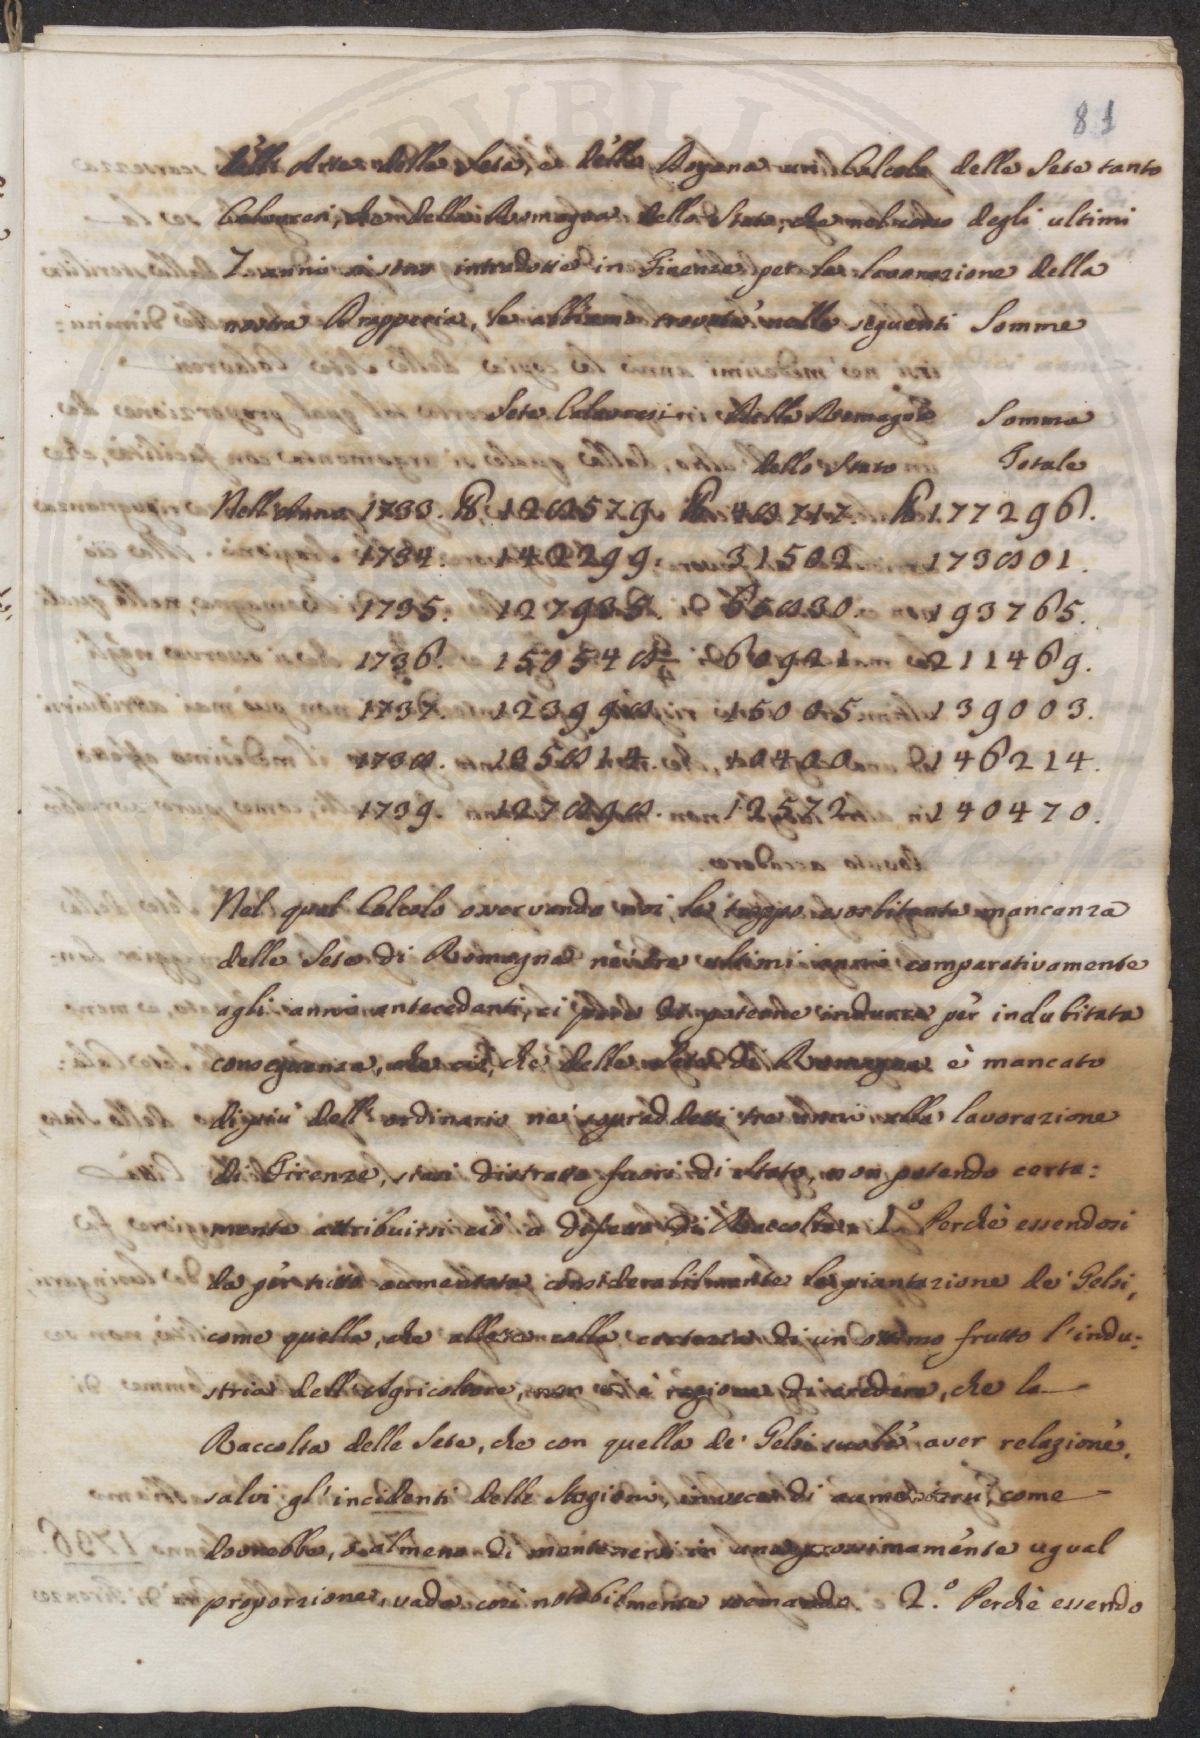 81
dell'Arte della Seta, e della Dogana un Calcolo delle Sete tanto
Calavresi, che della Romagna dello Stato, che nel corso degli ultimi
7 anni si sono introdotte in Firenze per la lavorazione della
nostra Drapperia, le abbiamo trovate nelle seguenti Somme
Sete Calavresi Della Romagna Somma
dello Stato Totale
Nell'Anno 1733. ℔ 128579 ℔ 48717. ℔ 177296.
1734. 142299. 31502. 173801.
1735. 127935. 65830. 193765.
1736. 150548 60921 211469.
1737. 123998. 15005. 139003.
1738. 135814. 10400. 146214.
1739. 127898. 12572. 140470.
Nel qual Calcolo osservando noi la troppo esorbitante mancanza
delle Sete di Romagna ne' tre ultimi anni comparativamente
agli anni antecedenti, ci pare di poterne indurre per indubitata
conseguenza, che ciò, che delle Sete di Romagna è mancato
di più dell'ordinario ne' sopraddetti tre anni alla lavorazione
di Firenze, siasi distratto fuori di Stato, non potendo certa:
mente attribuirsi ciò a difetto di Raccolta. 1.º Perchè essendosi
da per tutto aumentata considerabilmente la piantazione de' Gelsi,
come quella, che alletta colla certezza di un ottimo frutto l'indu:
stria dell'Agricoltore, non vi è ragione di credere, che la
Raccolta delle Sete, che con quella de' Gelsi suole aver relazione,
salvi gl'incidenti delle Stagioni, invece di aumentarsi, come
dovrebbe, o almeno di mantenersi in una prossimamente ugual
proporzione, vada così notabilmente scemando. 2.º Perchè essendo